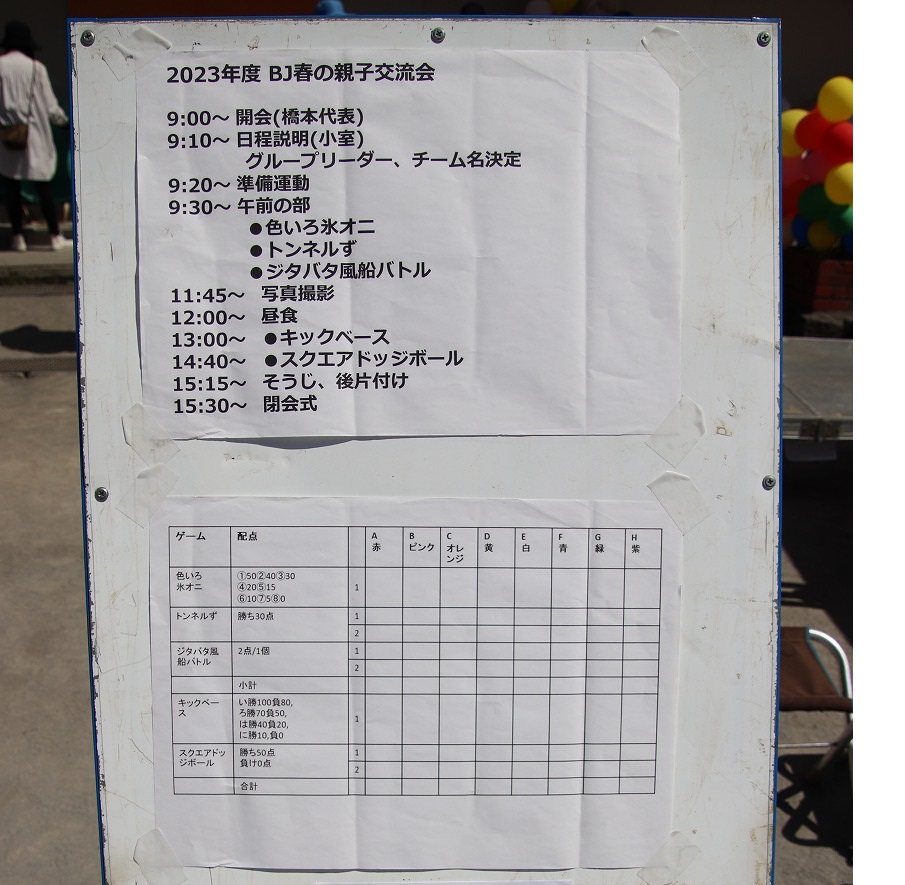 2023年度 BJ春の親子交流会
9:00～ 開会(橋本代表)
9:10～ 日程説明(小室)
グループリーダー、チーム名決定
9:20～ 準備運動
9:30～ 午前の部
●色いろ氷オニ
●トンネルず
●ジタバタ風船バトル
11:45～ 写真撮影
12:00～ 昼食
13:00～ ●キックベース
14:40～ ●スクエアドッジボール
15:15～ そうじ、後片付け
15:30～ 閉会式
ゲーム 配点 A B C D E F G H
赤 ピンク オレ 黄 白 青 緑 紫
ンジ
色いろ ①50②40③30
氷オニ ④20⑤15 1
⑥10⑦5⑧0
トンネルず 勝ち30点 1
2
ジタバタ風 2点/1個 1
船バトル 2
小計
キックベー い勝100負80,
ス ろ勝70負50, 1
は勝40負20,
に勝10,負0
スクエアドッ 勝ち50点 1
ジボール 負け0点 2
合計